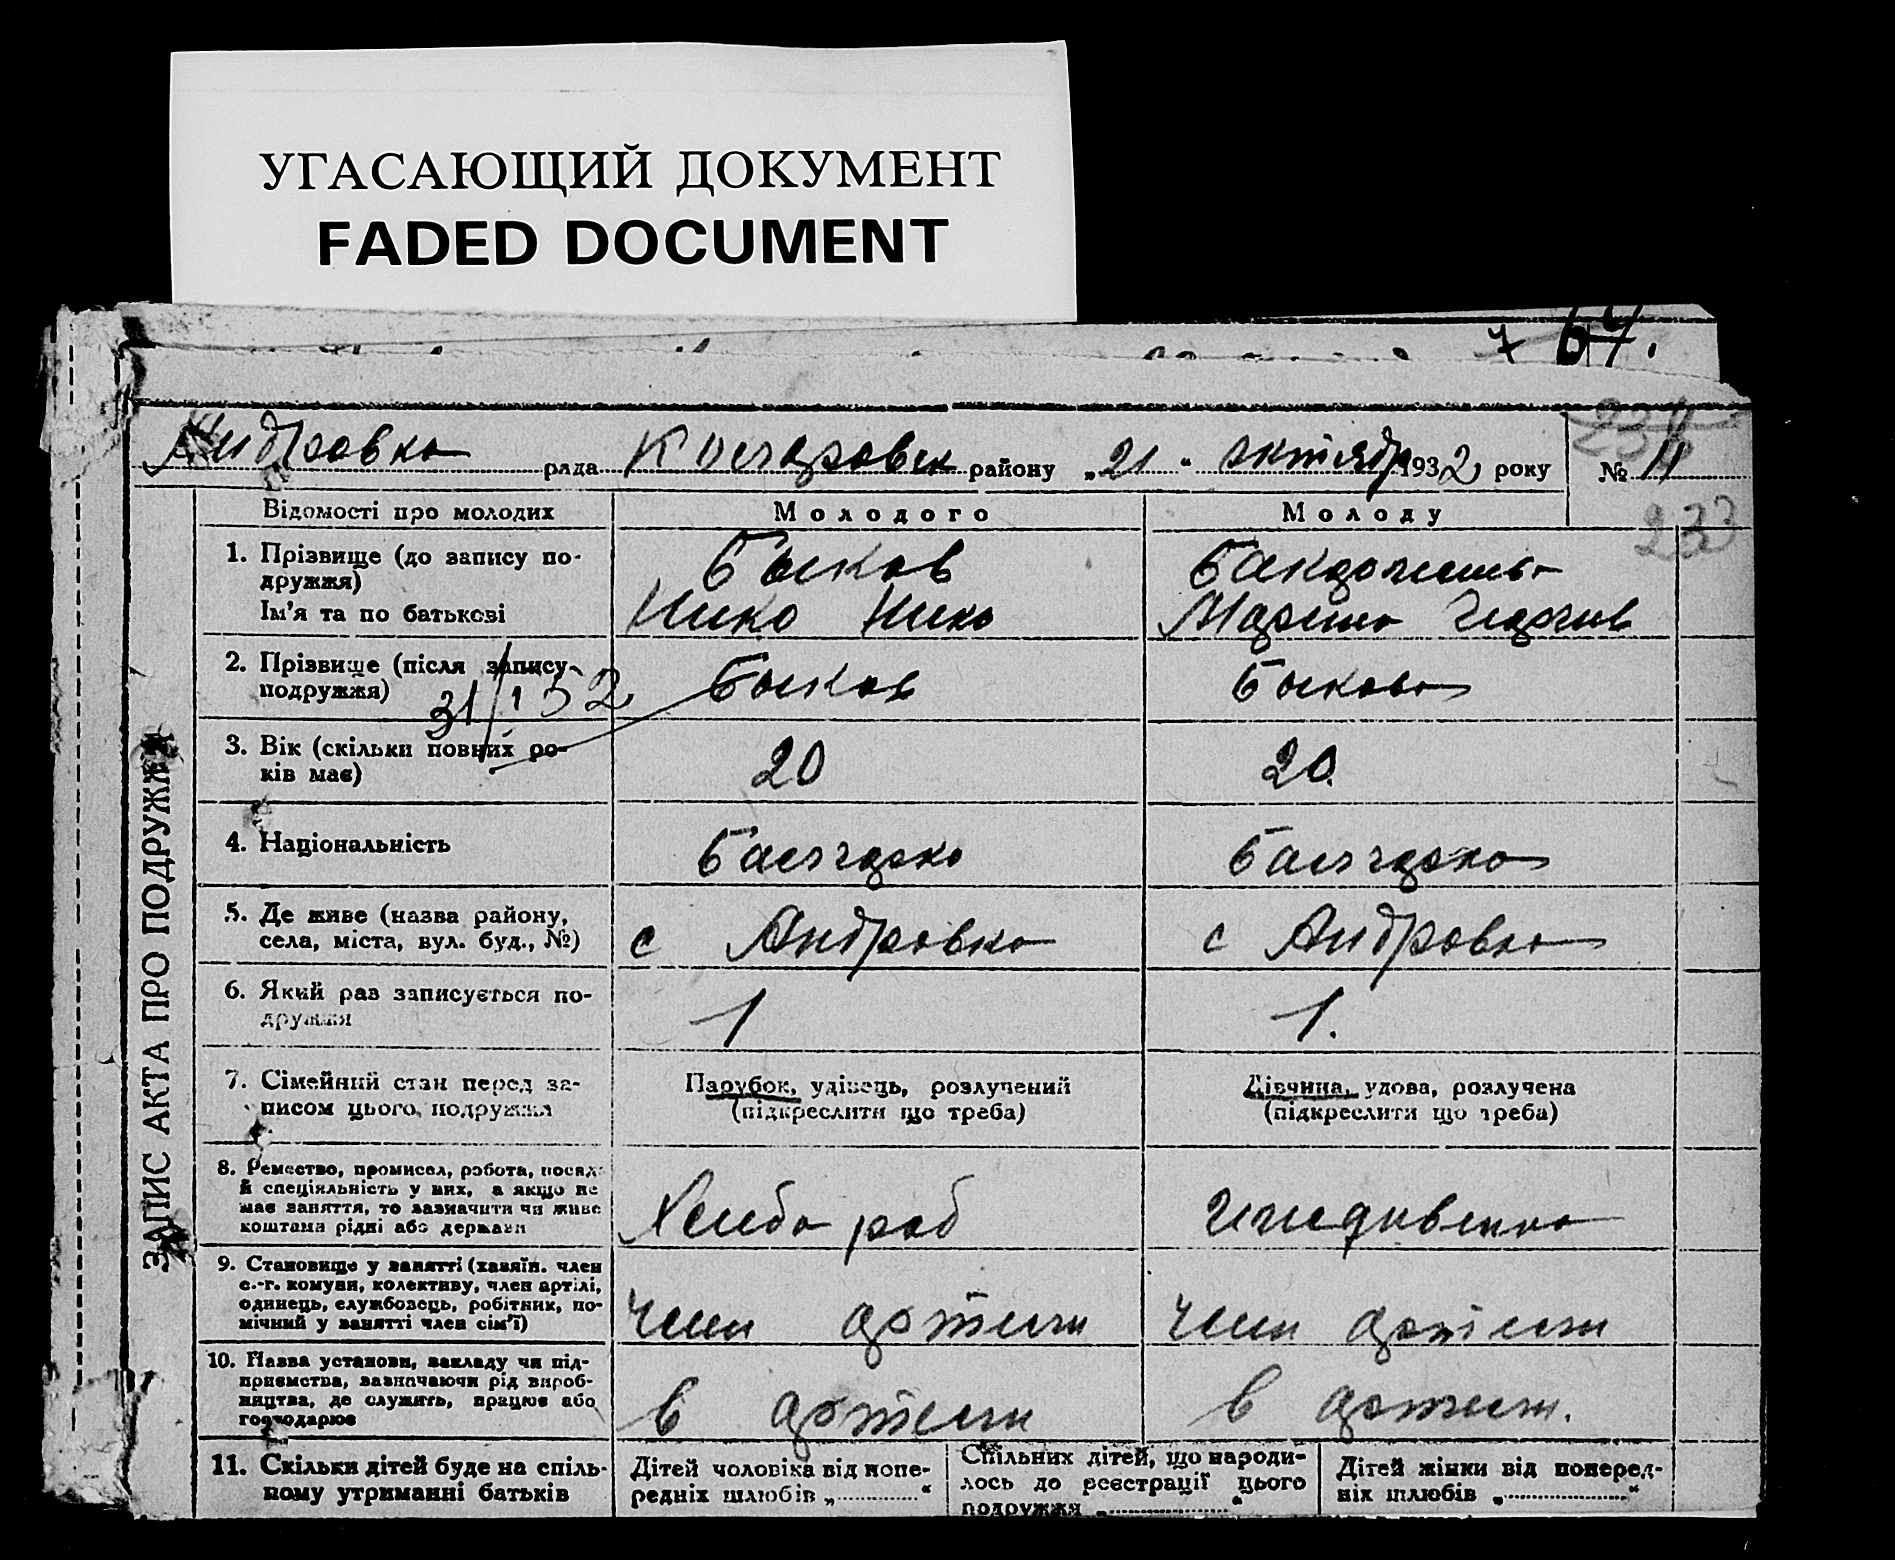 УГАСАЮЩИЙ ДОКУМЕНТ
FADED DOCUMENT
7 64.
234
Андровка рада района „21“ октября 1932 року № 11
233
Відомості про молодих Молодого Молоду
1. Прізвище (до запису по-
дружжя)
Быков
Ім'я та по батькові
Нико Нико Марина
2. Прізвище (після запису
подружжя)
Быков Быкова
31/1 52
3. Вік (скільки повних ро-
ків має)
20 20.
4. Національність
5. Де живе (назва району,
села, міста, вул. буд., №)
с Андровка с Андровка
6. Який раз записується по-
дружжя
1 1.
7. Сімейний стан перед за-
писом цього подружжя
Парубок, удівець, розлучений
(підкреслити що треба)
Дівчина, удова, розлучена
(підкреслити що треба)
8. Ремество, промисел, робота, посада
й спеціяльність у них, а якщо не
має заняття, то зазначити чи живе
коштами рідні або держави
Хлебо роб
9. Становище у занятті (хазяїн, член
с.-г. комуни, колективу, член артілі,
одинець, службовець, робітник, по-
мічний у занятті член сім'ї)
член артели член артели
10. Назва установи, закладу чи під-
приємства, зазначаючи рід вироб-
ництва, де служить, працює або
господарює
в артели в артели.
11. Скільки дітей буде на спіль-
ному утриманні батьків
Дітей чоловіка від попе-
редніх шлюбів „..............“
Спільних дітей, що народи-
лось до реєстрації цього
подружжя „..............“
Дітей жінки від поперед-
ніх шлюбів „..............“
ЗАПИС АКТА ПРО ПОДРУЖЖЯ